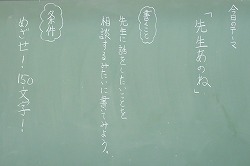 今日のテーマ
「先生あのね」
書くこと
先生に話をしたいことを
相談するみたいに書てみよう。
条件
めざせ！150文字！